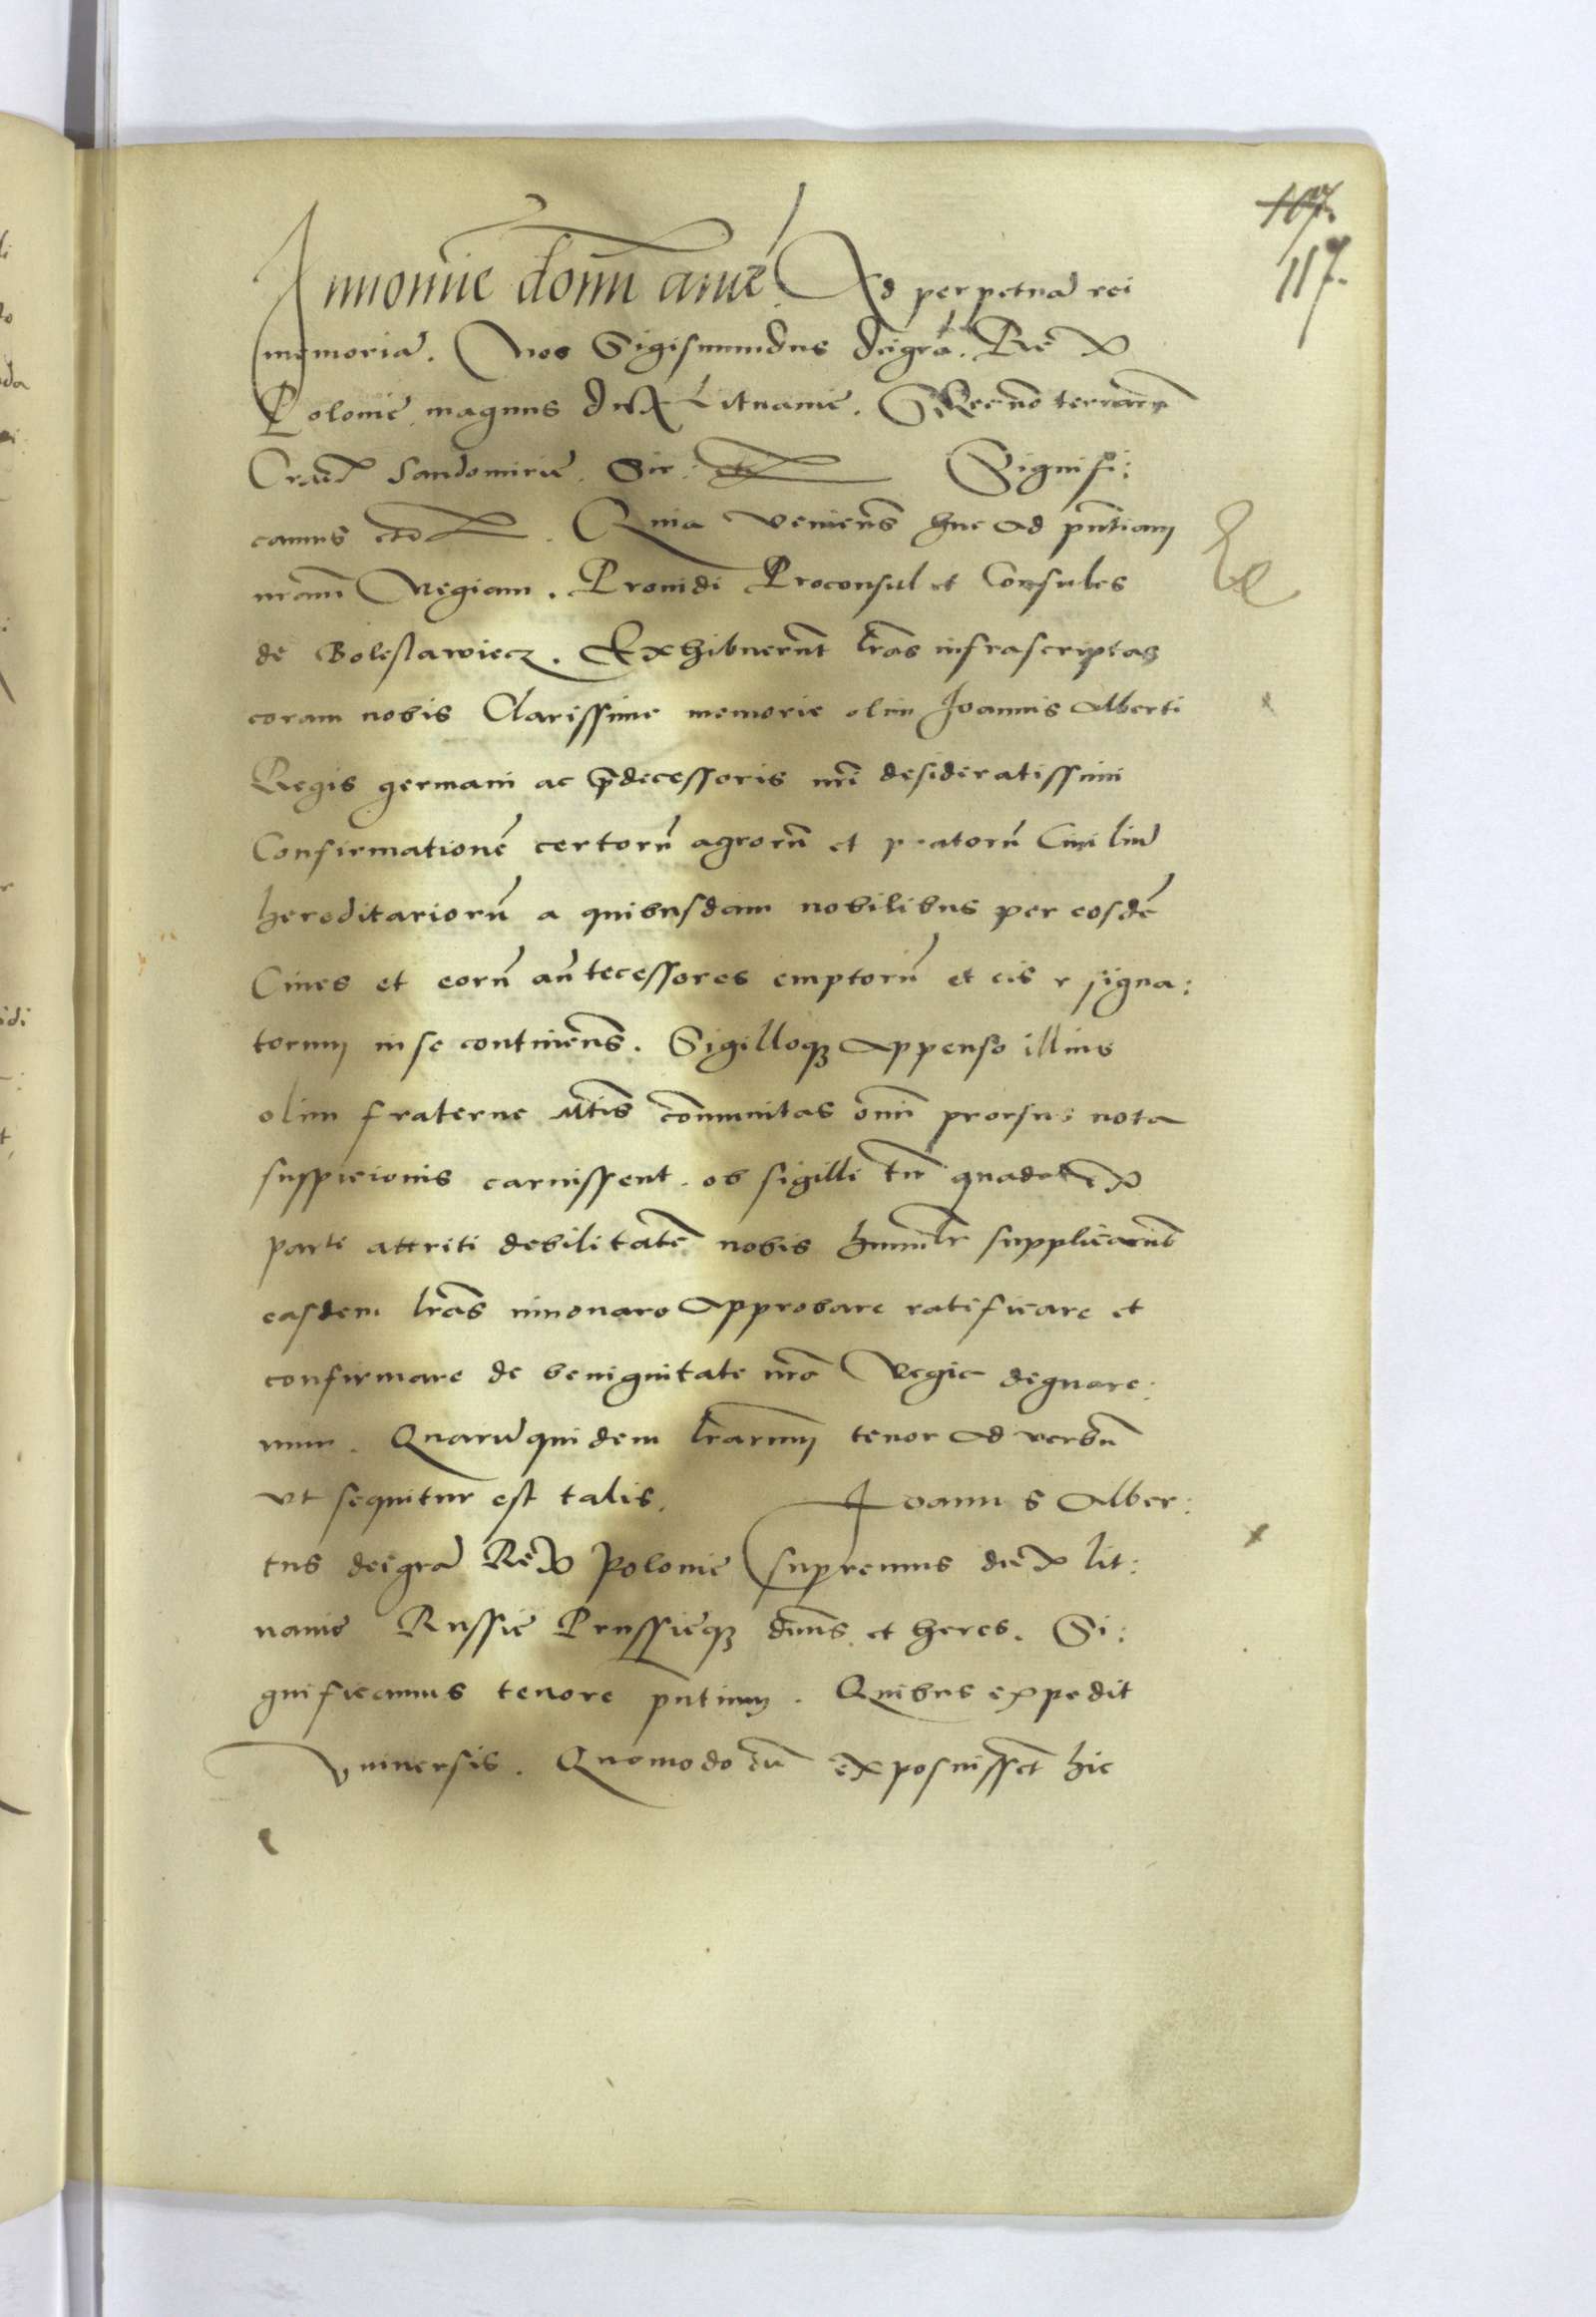 107.
117.
In no͞mie do͞mi ame͞ Ad perpetua͞ rei
memoria͞. Nos Sigismundus dei gra͞. Rex
Polonie magnus dux Lituanie. Necno͞ terraru͞
Crac͞ Sandomirie͞. Sir: etc Signifi:
camus etc. Quia venien͞s huc ad pn͞tiam
nr͞am Regiam. Prouidi Proconsul et Consules
de Boleslawiecz. Exhibuerunt lr͞as infrascriptas
coram nobis Clarissime memorie olim Joannis Alberti
Regis germani ac p͞decessoris nr͞i desideratissimi
Confirmatione͞ certoru͞ agroru͞ et pratoru͞ Ciuiliu͞
hereditarioru͞ a quibusdam nobilibus per eosde͞
Ciues et eoru͞ an͞tecessores emptoru͞ et eis resigna:
torum in se continen͞s. Sigilloq3 appenso illius
olim fraterne M͞tis co͞mmunitas om͞i prorsus nota
suspicionis caruissent. ob sigilli tn͞ quada͞ ex
parte attriti debilitate͞ nobis humil͞r supplicarunt
easdem lr͞as innouare approbare ratificare et
confirmare de benignitate nr͞a Regie dignare:
mur. Quaru͞ quidem lr͞arum tenor ad verbu͞
vt sequitur est talis. Joannes Alber:
tus dei gra͞ Rex Polonie supremus dux lit:
uanie Russie Prussieq3 dn͞us et heres. Si:
gnificamus tenore pn͞tium. Quibus expedit
vniuersis. Quomodo cu͞ exposuisset hic